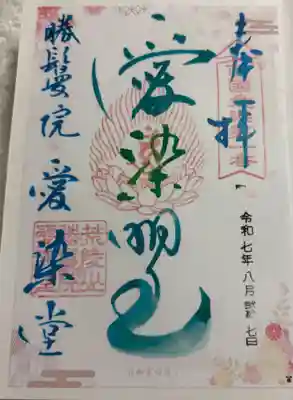 奉拝
愛染明王
勝鬘院愛染堂
令和七年八月 七日